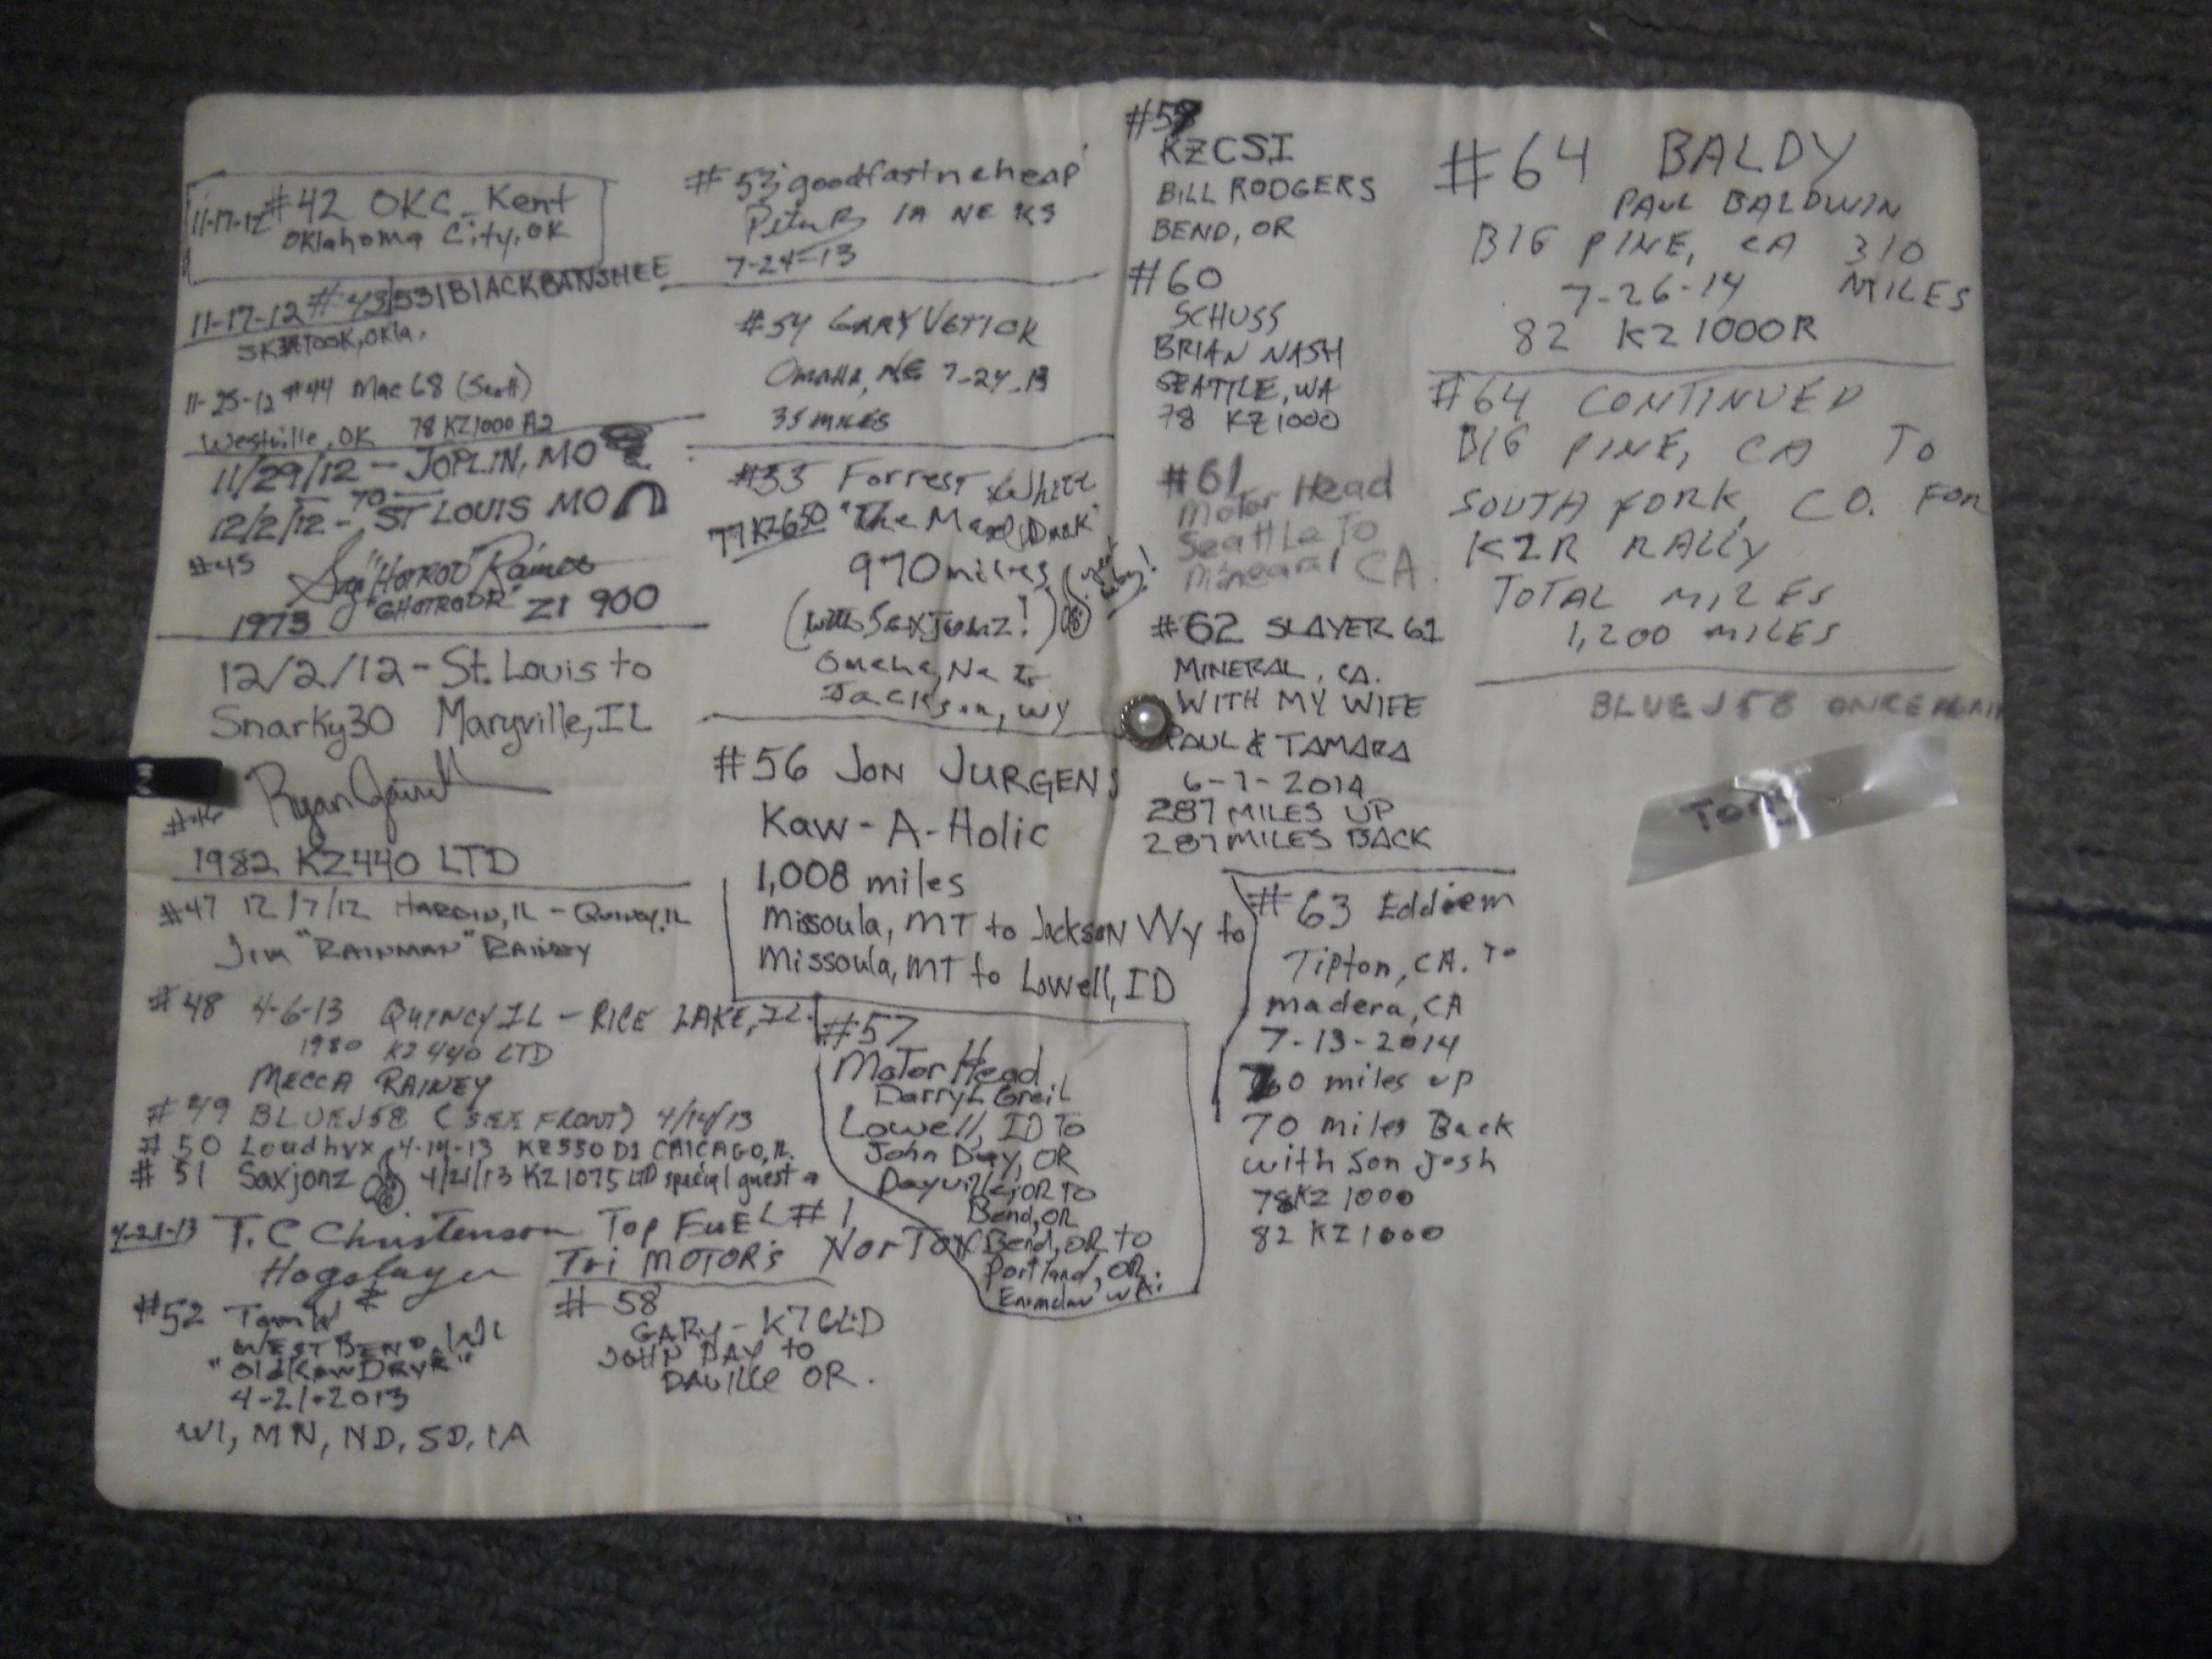 11-17-12 #42 OKC_Kent
Oklahoma City, OK
11-17-12 #43 531BlACKBANSHEE
SKIATOOK, OKla.
11-25-12 #44 Mac 68 (Scott)
Westville, OK 78 KZ1000 A2
11/29/12 - JOPLIN, MO
TO
12/2/12 - ST LOUIS MO
#45
"HOTROD" Raines
1973 "GHOTRODR" Z1 900
12/2/12 - St. Louis to
Snarky30 Maryville, IL
#46 Ryan
1982 KZ440 LTD
#47 12/7/12 HARDIN, IL - QUINCY, IL
Jim "RAINMAN" RAINEY
#48 4-6-13 QUINCY IL - RICE LAKE, IL.
1980 KZ 440 LTD
MECCA RAINEY
#49 BLUEJ58 (SEE FRONT) 4/14/13
#50 Loudhvx 4-14-13 KZ550 D1 CHICAGO, IL.
#51 Saxjonz 4/21/13 KZ1075 LTD special guest
4-21-13 T.C Christenson Top FUEL #1
Hogslayer Tri MOTOR'S NorTon
#52 Tom W
WEST BEND, WI
"OldKawDRVR"
4-21-2013
WI, MN, ND, SD, IA
#53 goodfastncheap
Peter B IA NE KS
7-24-13
#54 GARY VETICK
OMAHA, NE 7-24-13
35 MILES
#55 Forrest White
77 KZ650 "The
970 miles
(with SaxJonz!)
Omaha, Ne to
Jackson, WY
#56 JON JURGENS
Kaw-A-Holic
1,008 miles
Missoula, MT to Jackson Wy to
Missoula, MT to Lowell, ID
#57
Motor Head
Darryl Greil
Lowell, ID To
John Day, OR
Dayville, OR TO
Bend, OR
Bend, OR to
Portland, OR.
#58
GARY - K7GLD
JOHN DAY to
DAVILLE OR.
#59
KZCSI
BILL RODGERS
BEND, OR
#60
SCHUSS
BRIAN NASH
SEATTLE, WA
78 KZ1000
#61
Motor Head
Seattle To
CA.
#62 SLAYER 61
MINERAL, CA.
WITH MY WIFE
PAUL & TAMARA
6-7-2014
287 MILES UP
287 MILES BACK
#63 Eddiem
Tipton, CA. To
madera, CA
7-13-2014
70 miles up
70 miles Back
with Son Josh
78KZ 1000
82 KZ1000
#64 BALDY
PAUL BALDWIN
BIG PINE, CA 310
7-26-14 MILES
82 KZ1000R
#64 CONTINUED
BIG PINE, CA TO
SOUTH FORK, CO. FOR
KZR RALLY
TOTAL MILES
1,200 MILES
BLUEJ58 ONCE AGAIN